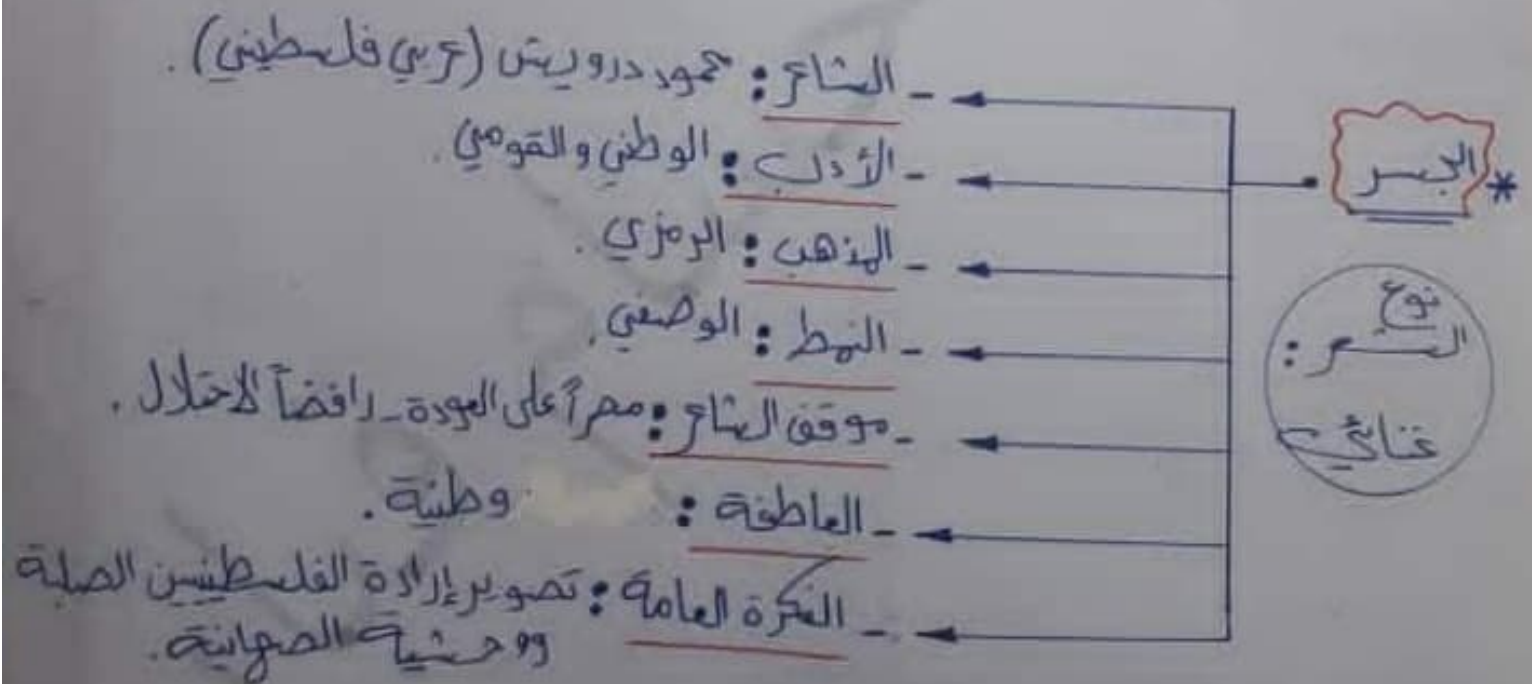 * الجسر
نوع
الشعر :
غنائي
- الشاعر : محمود درويش (عربي فلسطيني) .
- الأدب : الوطني والقومي .
- المذهب : الرمزي .
- النمط : الوصفي .
- موقف الشاعر : مصراً على العودة - رافضاً الاحتلال .
- العاطفة : وطنية .
- الفكرة العامة : تصوير إرادة الفلسطينيين الصلبة
ووحشية الصهاينة .